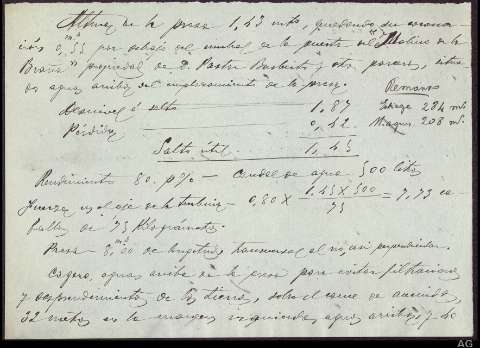 Altura de la presa 1,43 mts, quedando su corona-
ción 0,55 por debajo del umbral de la puerta del "Molino de la
Braña" propiedad de D. Pastor y otra porción, situa-
do aguas arriba del emplazamiento de la presa.
Remanso
Desnivel ó salto 1,87 Estiage 284 mts.
Pérdida 0,42 M. aguas 208 mts.
Salto útil. 1,45
Rendimiento 80. p% — Caudal de agua 500 litros
Fuerza en el eje de la turbina — 0,80 X 1,45 X 500 / 75 = 7,73 ca-
ballos de 75 Kilográmetros.
Presa — 8,00 de longitud, transversal al río, casi perpendicular.
aguas arriba de la presa para evitar filtraciones
y desprendimiento de las tierras, sobre el cauce de avenida,
22 metros en la margen izquierda, aguas arriba, y de
AG